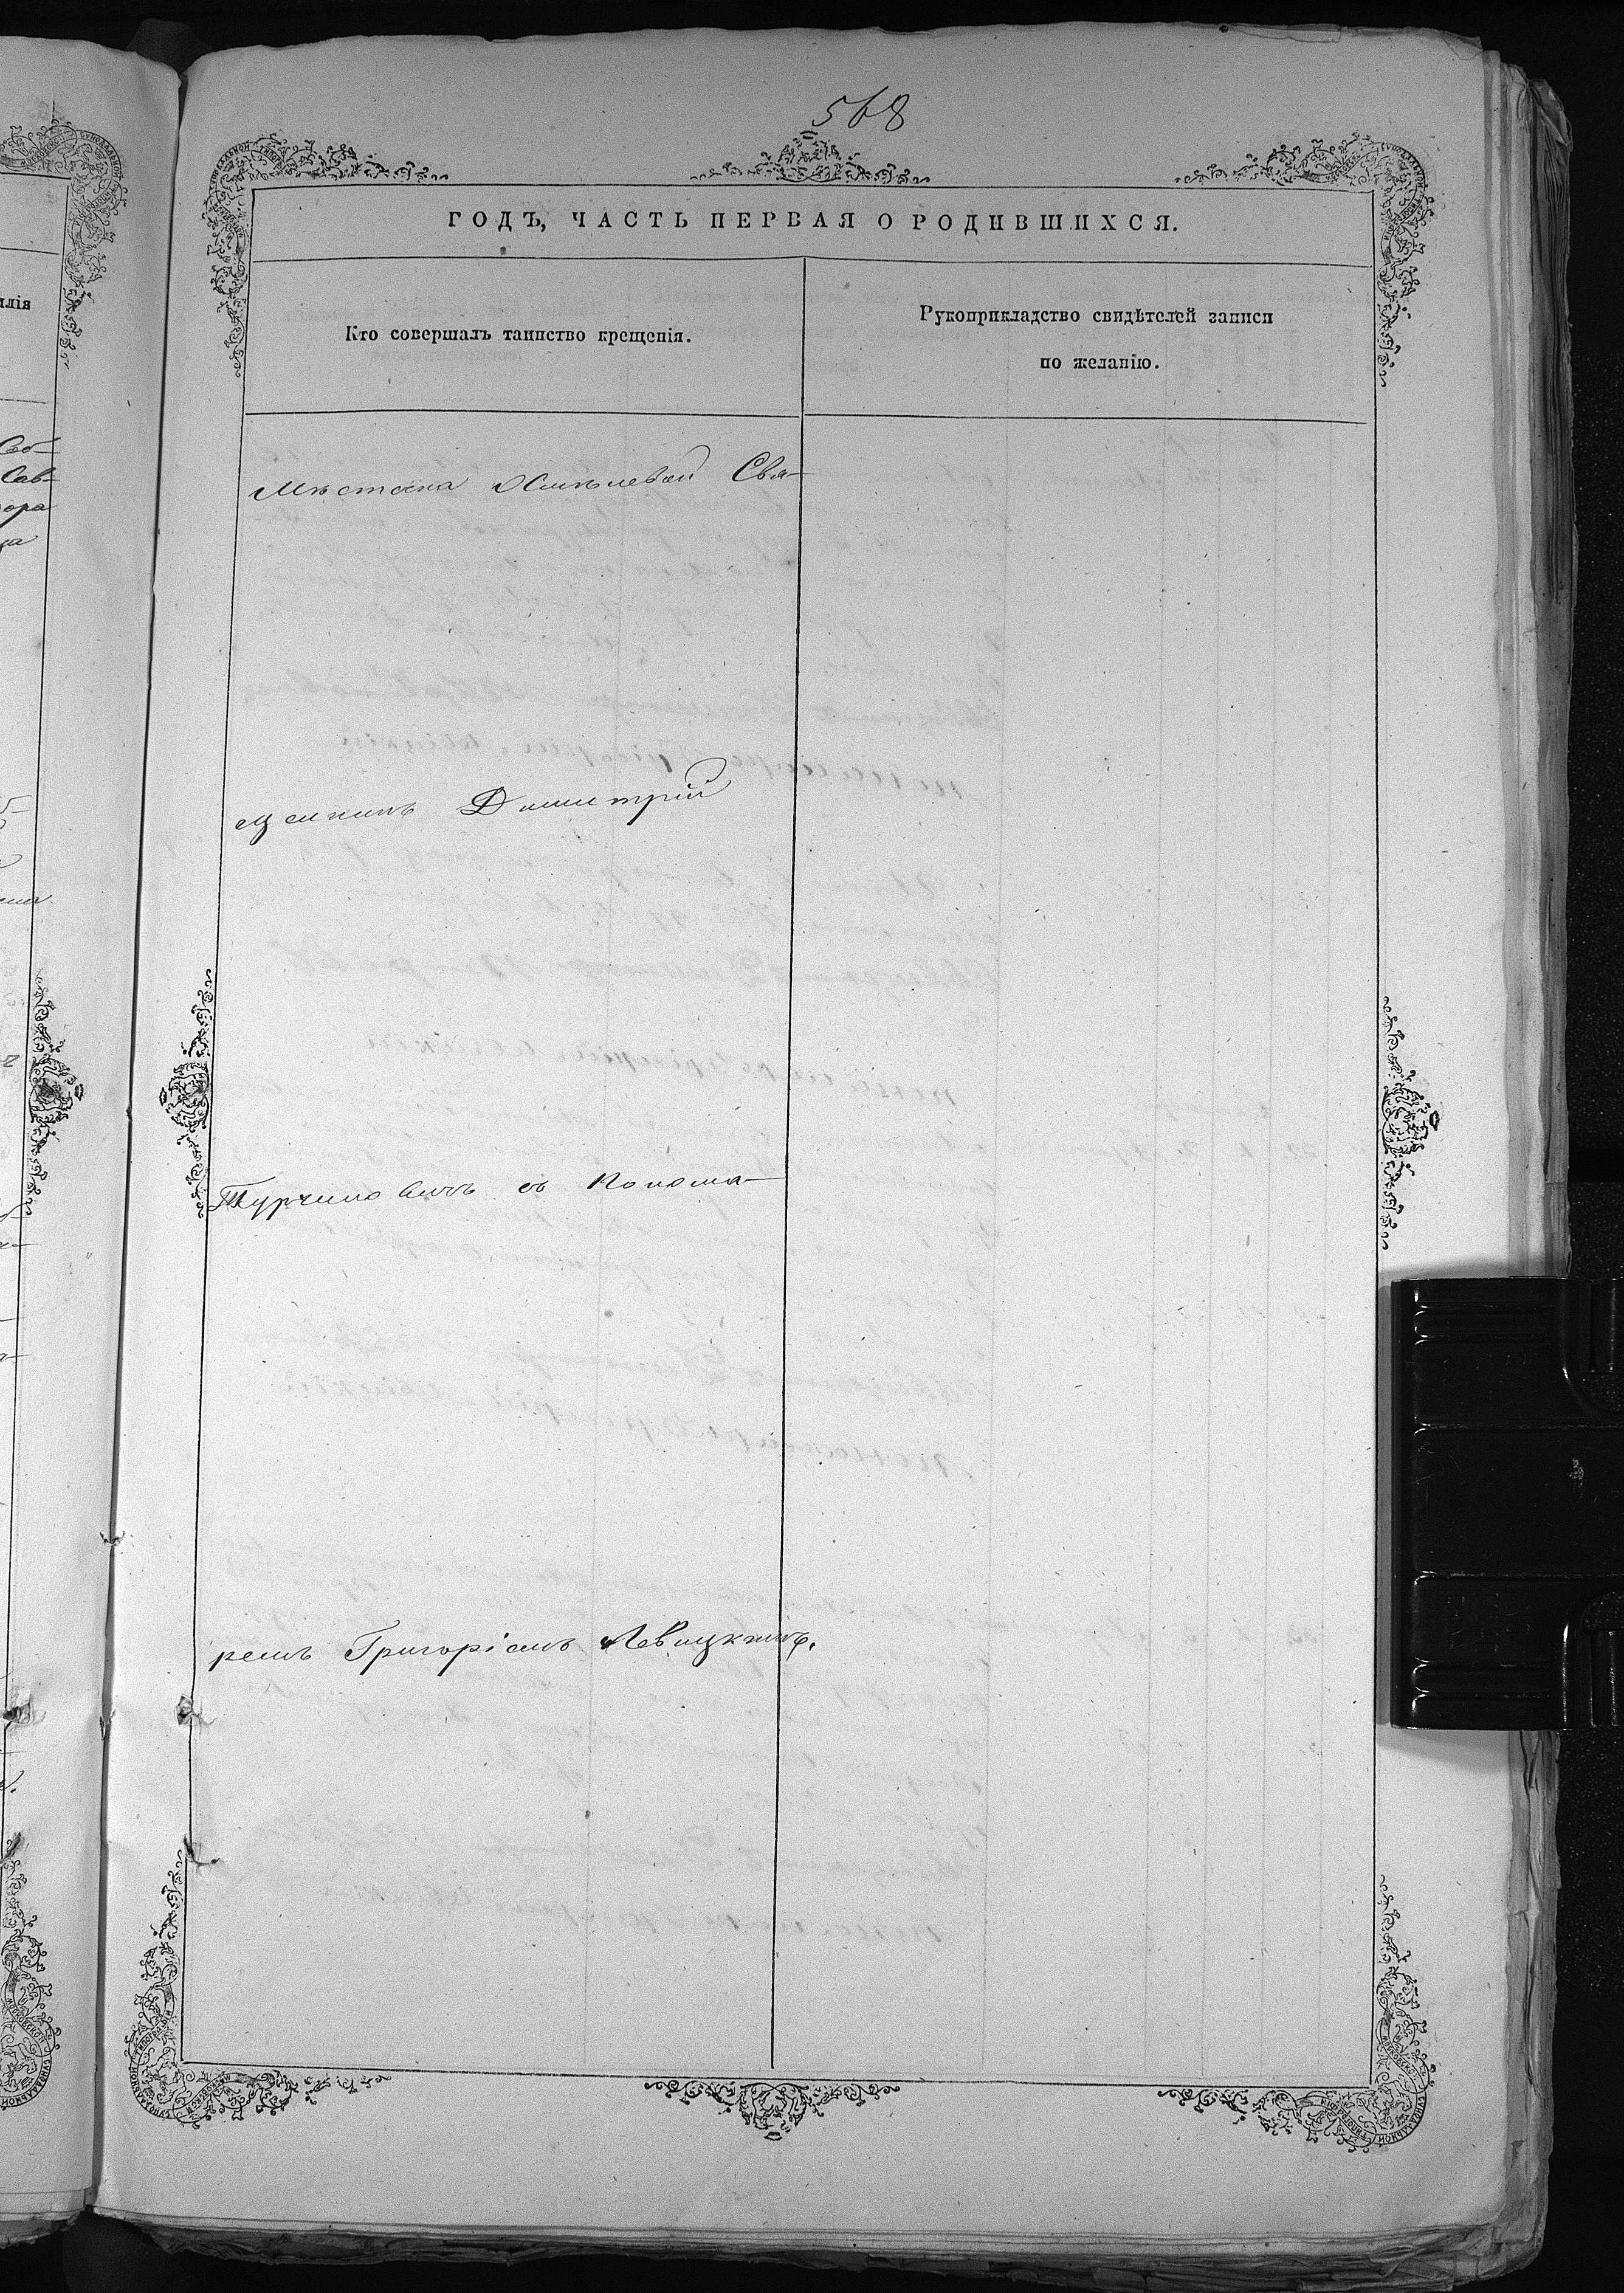 568
ГОДЪ, ЧАСТЬ ПЕРВАЯ О РОДИВШИХСЯ.
Кто совершалъ таинство крещенія.
Рукоприкладство свидѣтелей записи
по желанію.
Мѣстечка Хмѣлевой Свя-
щенникъ Димитрій
Турчиновичъ съ Понома-
ремъ Григоріемъ Левицкимъ.